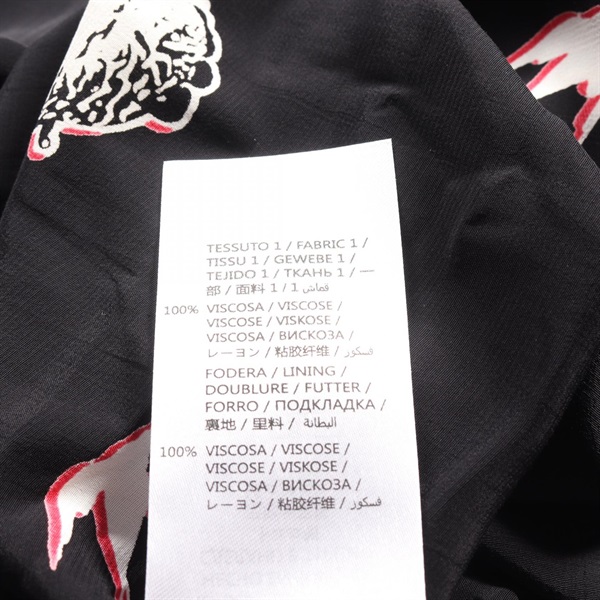 TESSUTO 1 / FABRIC 1 /
TISSU 1 / GEWEBE 1 /
TEJIDO 1 / ТКАНЬ 1 / 一
部 / 面料 1 / 1 قماش
100% VISCOSA / VISCOSE /
VISCOSE / VISKOSE /
VISCOSA / ВИСКОЗА /
レーヨン / 粘胶纤维 / فسكور
FODERA / LINING /
DOUBLURE / FUTTER /
FORRO / ПОДКЛАДКА /
裏地 / 里料 / البطانة
100% VISCOSA / VISCOSE /
VISCOSE / VISKOSE /
VISCOSA / ВИСКОЗА /
レーヨン / 粘胶纤维 / فسكور